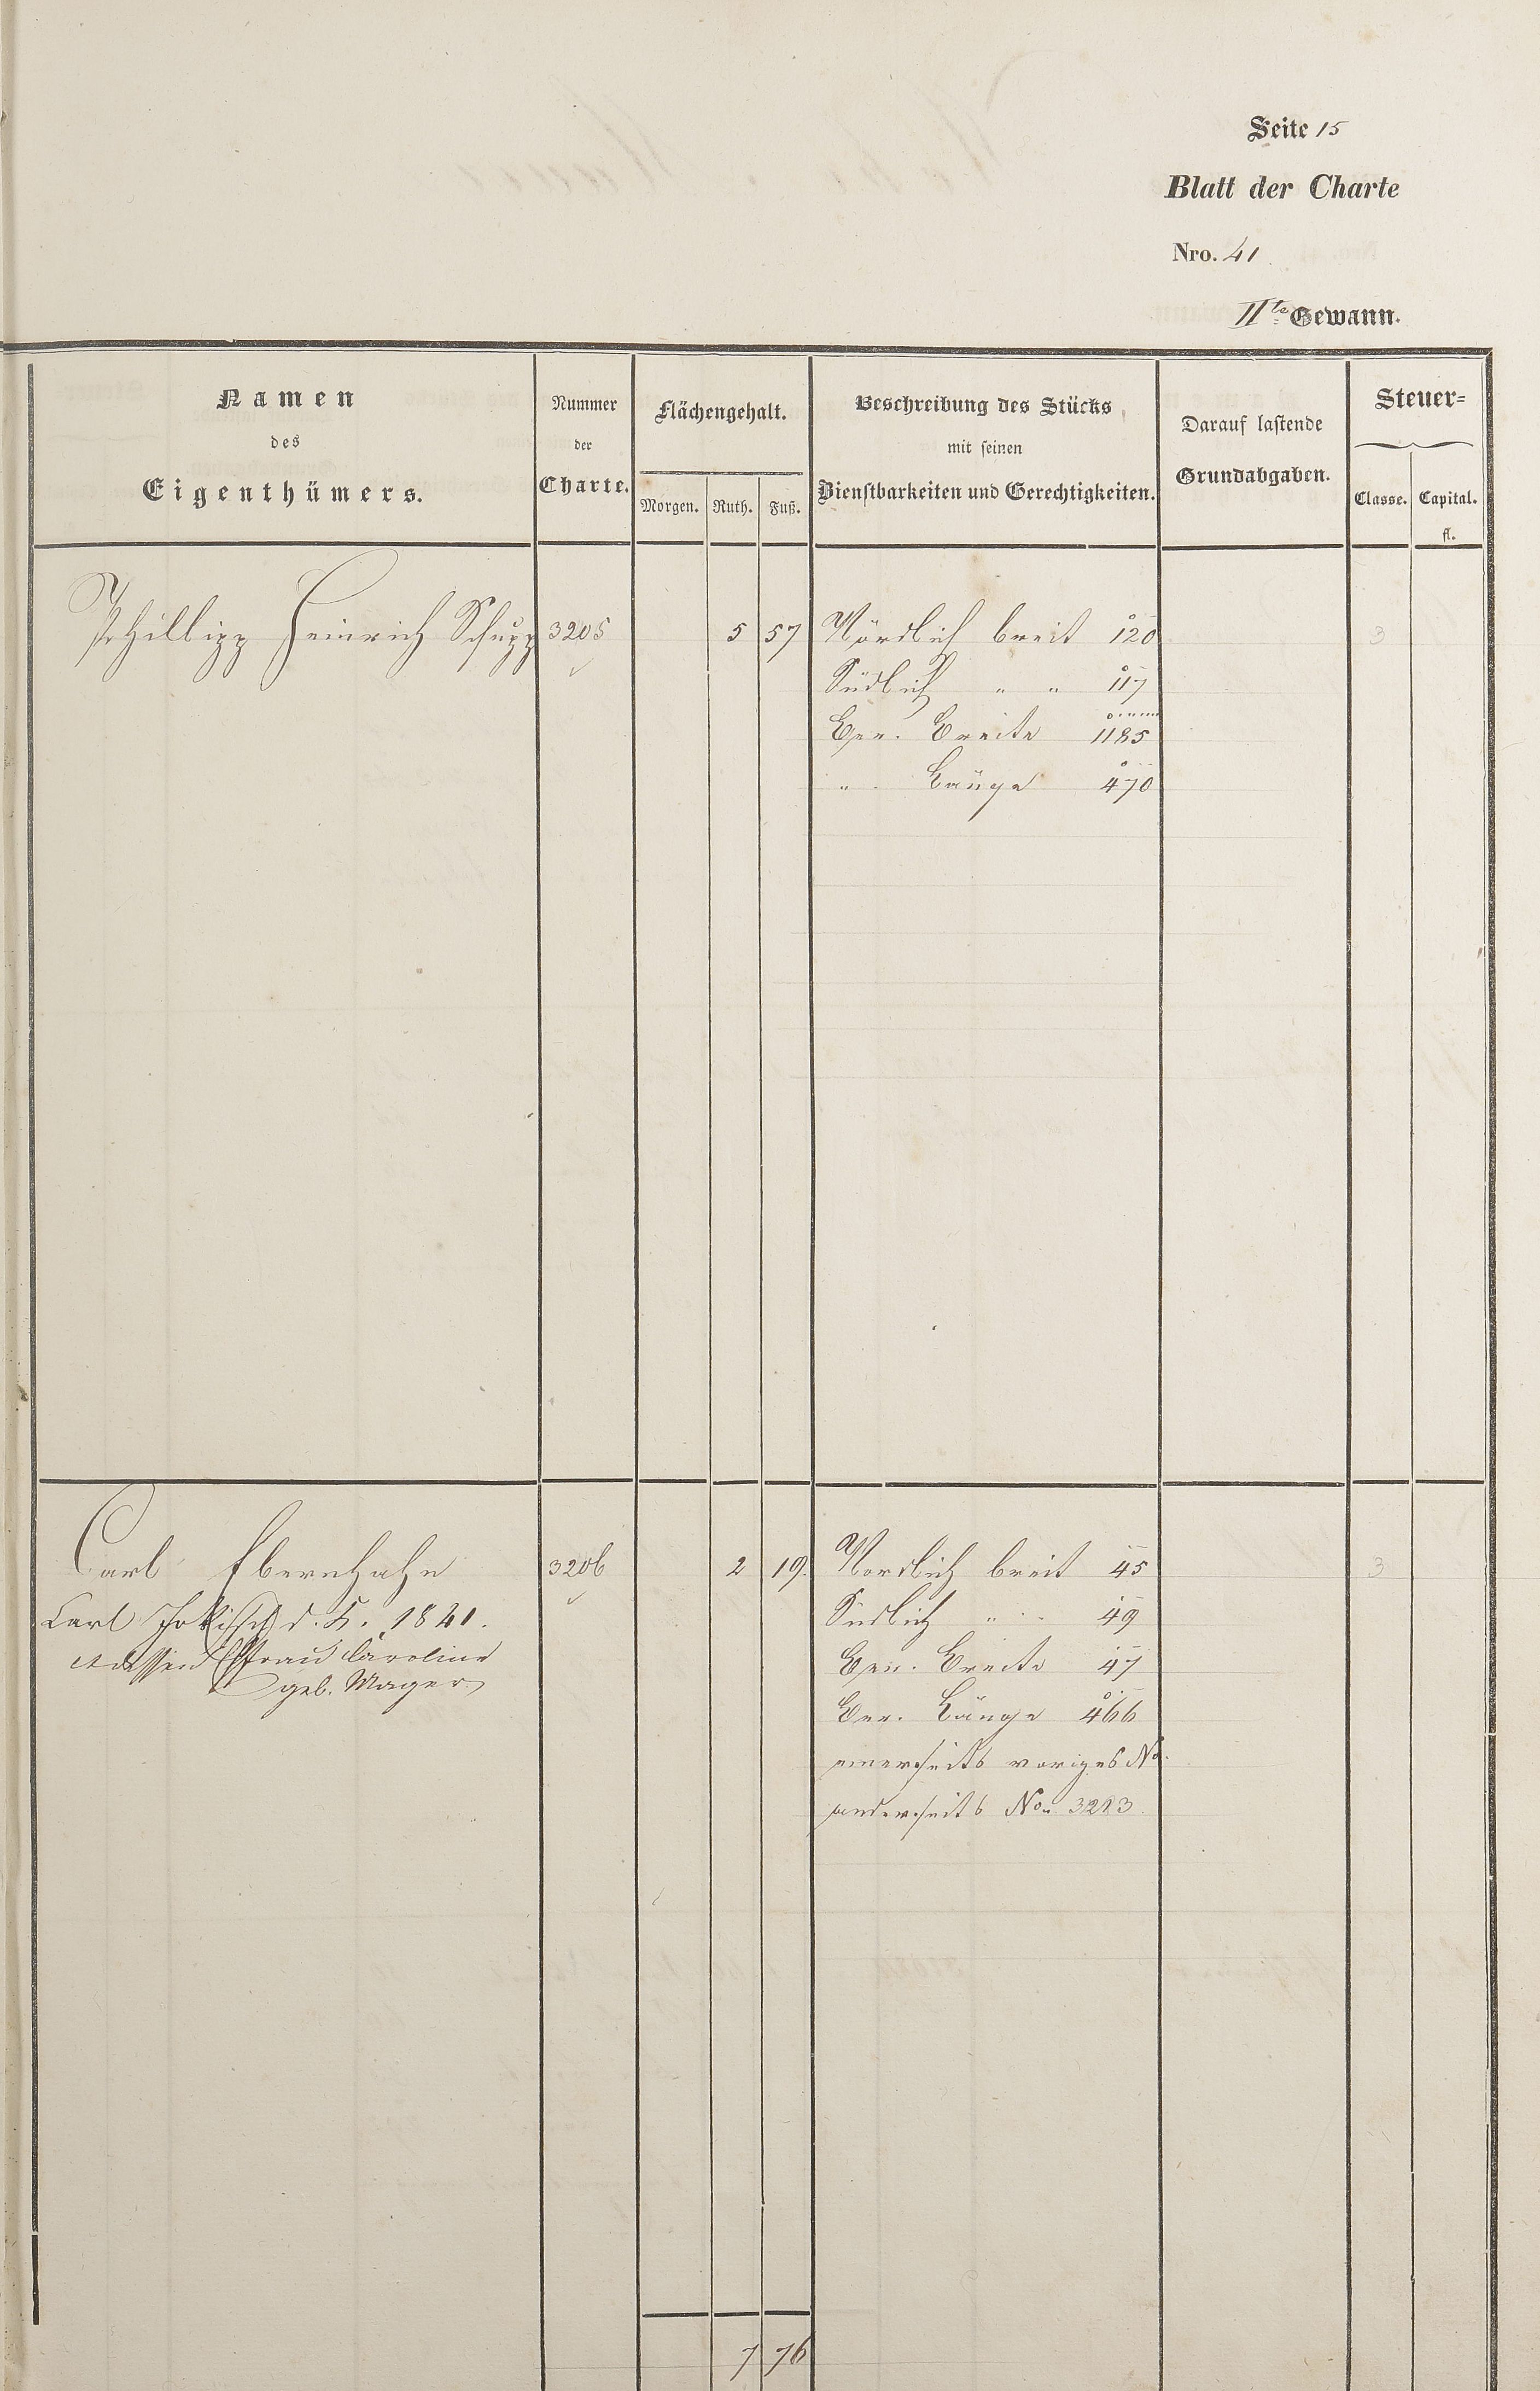 Seite 15
Blatt der Charte
Nro. 41
IIte Gewann.
Namen
des
Eigenthümers.
Nummer
der
Charte.
Flächengehalt.
Morgen. Ruth. Fuß.
Beschreibung des Stücks
mit seinen
Dienstbarkeiten und Gerechtigkeiten.
Darauf lastende
Grundabgaben.
Steuer=
Classe. Capital.
fl.
Philipp Heinrich Schupp 3205 5 57 Nördlich breit 120 3
Südlich " " 117
Gem. Breite 1185
" Länge 470
Carl Ebernhahn 3206 2 19. Nordlich breit 45 3
Carl d. K. 1821. Südlich " 49
dessen Ehfrau Caroline Gem. Breite 47
geb. Mager
Gem. Länge 466
einerseits voriges No.
anderseits No. 3213
7 76